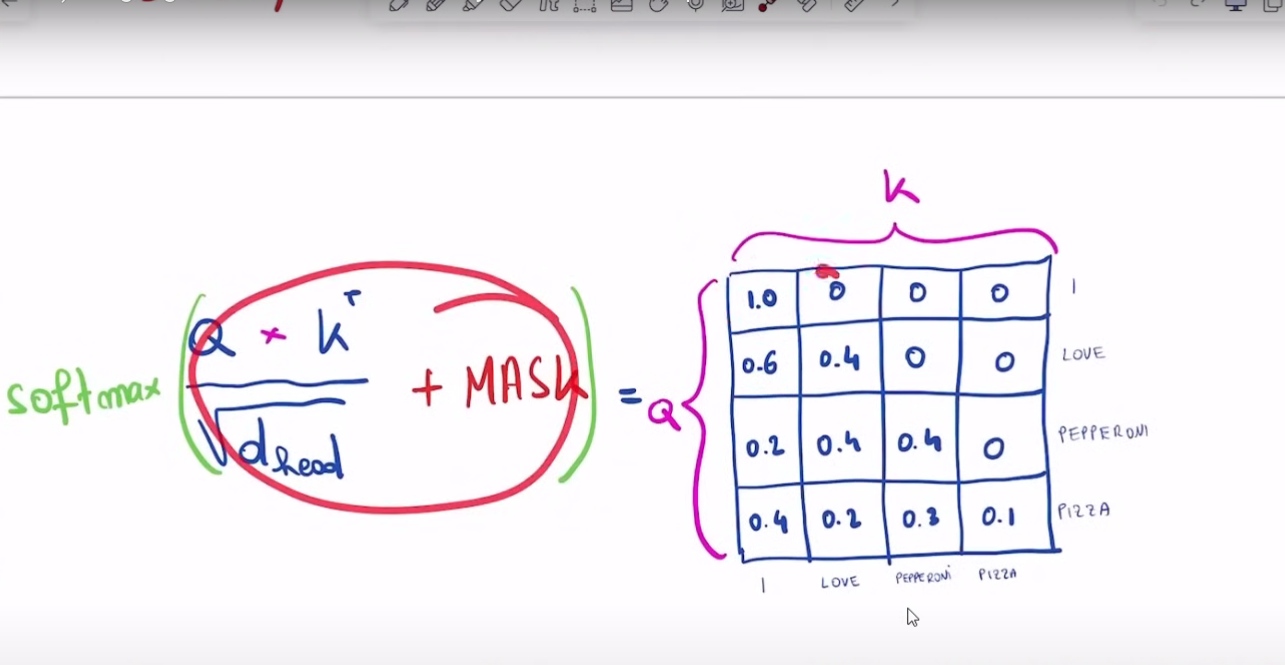 K
softmax ( Q × K^T / √d_head + MASK ) = Q
1.0 0 0 0 I
0.6 0.4 0 0 LOVE
0.2 0.4 0.4 0 PEPPERONI
0.4 0.2 0.3 0.1 PIZZA
I LOVE PEPPERONI PIZZA